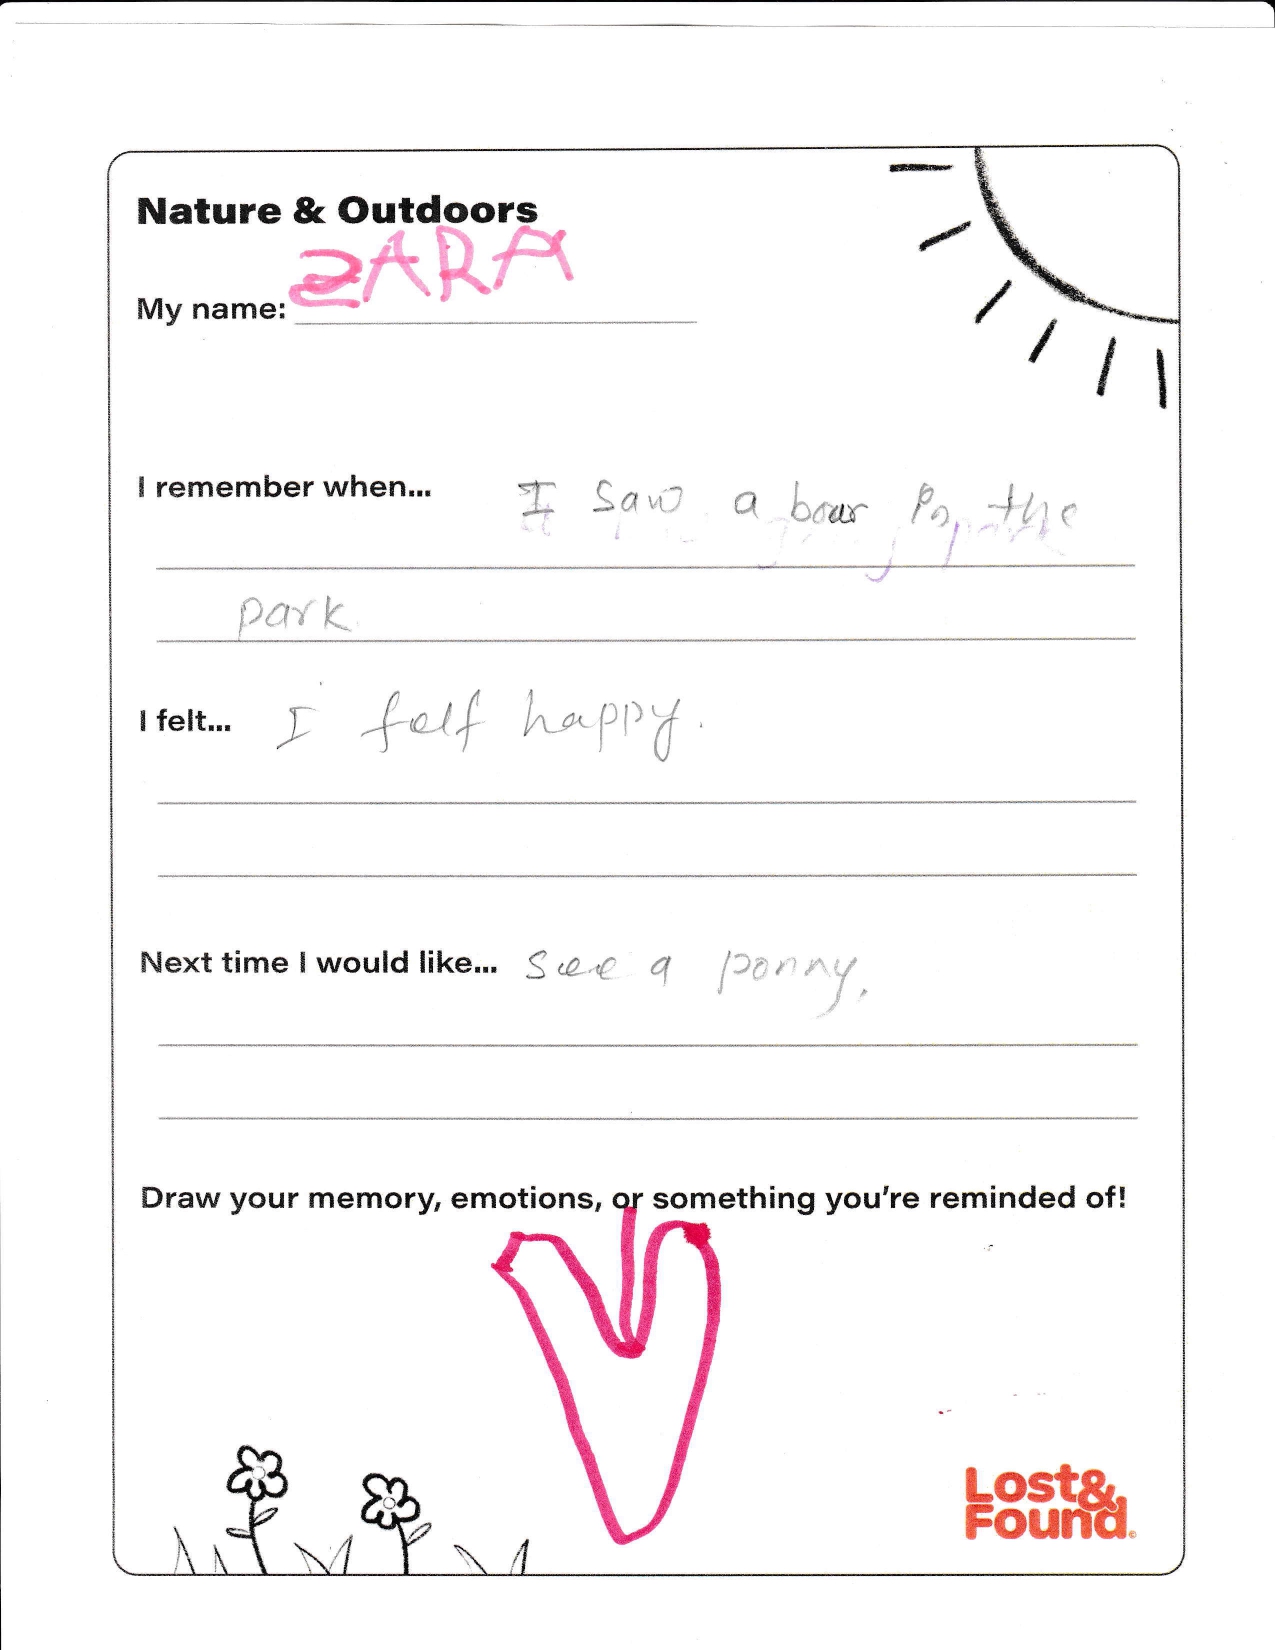 Nature & Outdoors
My name: ZARA
I remember when... I saw a boar in the
park
I felt... I felf happy.
Next time I would like... see a ponny.
Draw your memory, emotions, or something you're reminded of!
Lost&
Found